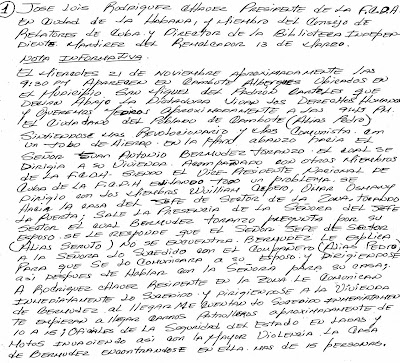 ① José Luis Rodriguez Chavez Presidente de la F.C.D.H
en Ciudad de la Habana, y Miembro del Consejo de
Relatores de Cuba. y Director de la Biblioteca Indepen-
diente Martires del Remolcador 13 de Marzo.
Nota Informativa.
El Miercoles 21 de Noviembre aproximadamente las
9:30 PM aparecen en Cambote Albergues Ubicados en
el Municipio San Miguel del Padrón Carteles que
Decian Abajo la Dictadura Vivan los Derechos Humanos
y Queremos aproximadamente a las 9:45 PM.
El Ciudadano del Poblado de Cambote (Alias Pedro)
Sintiendose mas Revolucionario y mas Comunista. con
un tobo de Hierro. en la mano avanzo hacia el
Señor Juan Antonio Bermudez Toranzo. el cual se
Dirigia a su Vivienda. Acompañado con otros Miembros
de la F.C.D.H Siendo el Vice Presidente Nacional de
Cuba de la F.C.D.H evitando todo un Problema. se
Dirigio con los Miembros William Cepero, Omar
Hacia la Casa del Jefe de Sector de la Zona tocando
la Puerta; Sale la Presencia de la Señora del Jefe
Sector el cual Bermudez Toranzo Pregunta por su
Esposo se le Responde que el Señor Jefe de Sector
(Alias) no se encuentra. Bermudez le explica
a la Señora lo Susedido con el Compañero (Alias Pedro)
Para que se lo Comunicara a su Esposo. y Dirigiendose
asi despues de Hablar con la Señora para su casa.
A Rodriguez Chavez Residente en la Zona le Comunican
Inmediatamente lo Susedido y Dirigiendose a la Vivienda
de Bermudez al llegar me cuentan lo Susedido Inmediatamente
te empiezan a llegar Carros Patrulleros aproximadamente de
10 a 15 Oficiales de la Seguridad del Estado en Ladas y
Motos Invadiendo asi con la Mayor Violencia la Casa
de Bermudez encontrandose en ella mas de 15 personas.